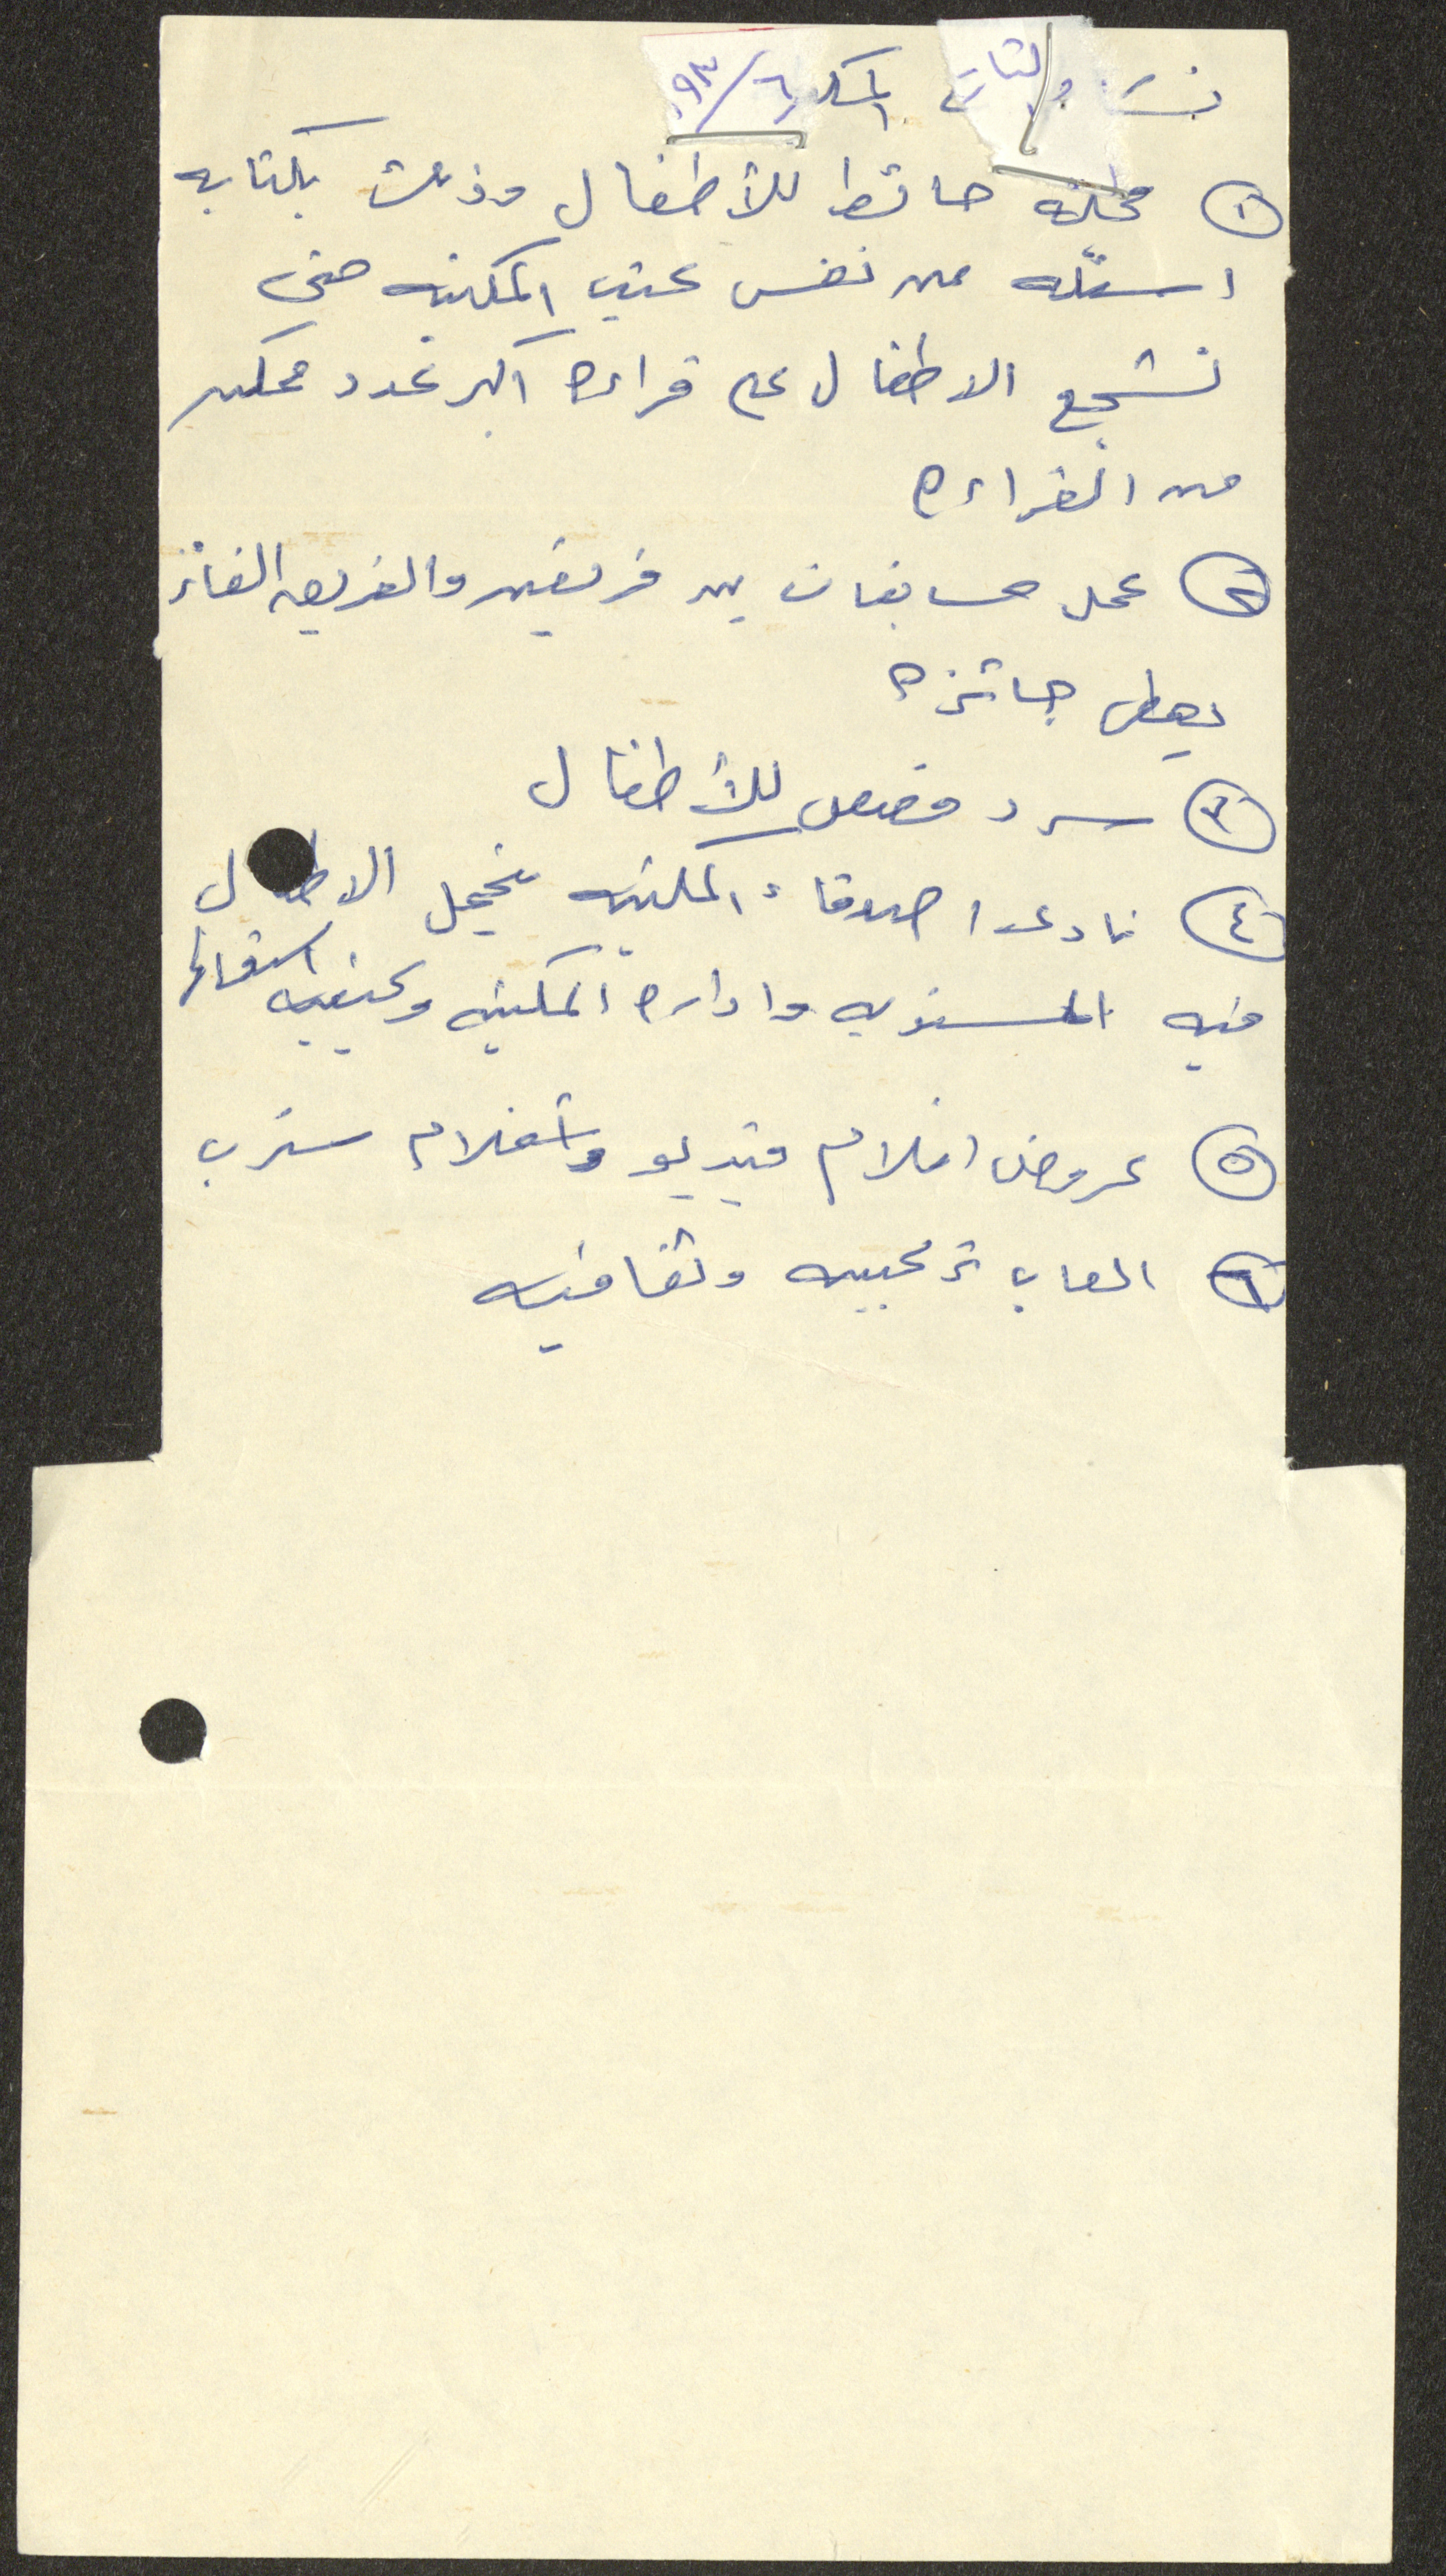 المكتبة ٩٣/٦
① مجلة حائط للأطفال وذلك بكتابه
اسئله من نفس كتب المكتبه حتى
نشجع الاطفال على قراءه اكبر عدد ممكن
من القراءه
② عمل مسابقات بين فريقين والفريق الفائز
يعطى جائزه
③ سرد قصص للأطفال
④ نادى اصدقاء المكتبه يتحمل الاطفال
فيه المسئوليه واداره المكتبه وكيفيه استعمالها
⑤ عروض افلام فيديو وافلام سترب
⑥ العاب تركيبيه وثقافيه